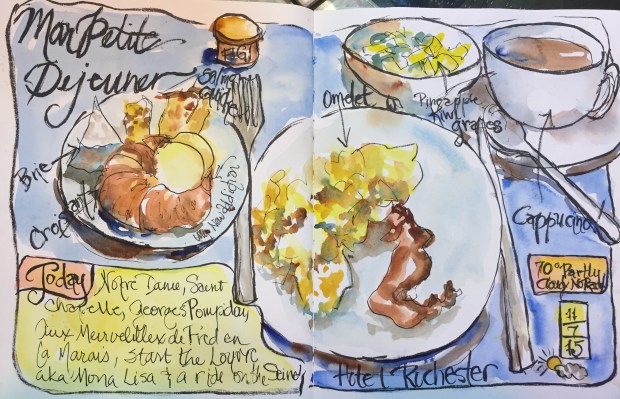 Mon Petite
Dejeuner
FIG!
Salmon
Omelet
Pineapple
Kiwi
grapes
Brie
Croissant
Cappucino!
Today
Notre Dame, Saint
Chapelle, Georges Pompiday,
Aux Merveilleux de Fred en
La Marais, start the Louvre
aka Mona Lisa & a ride on the Seine
70° Partly
Cloudy No Rain
11
7
15
Hotel Rochester